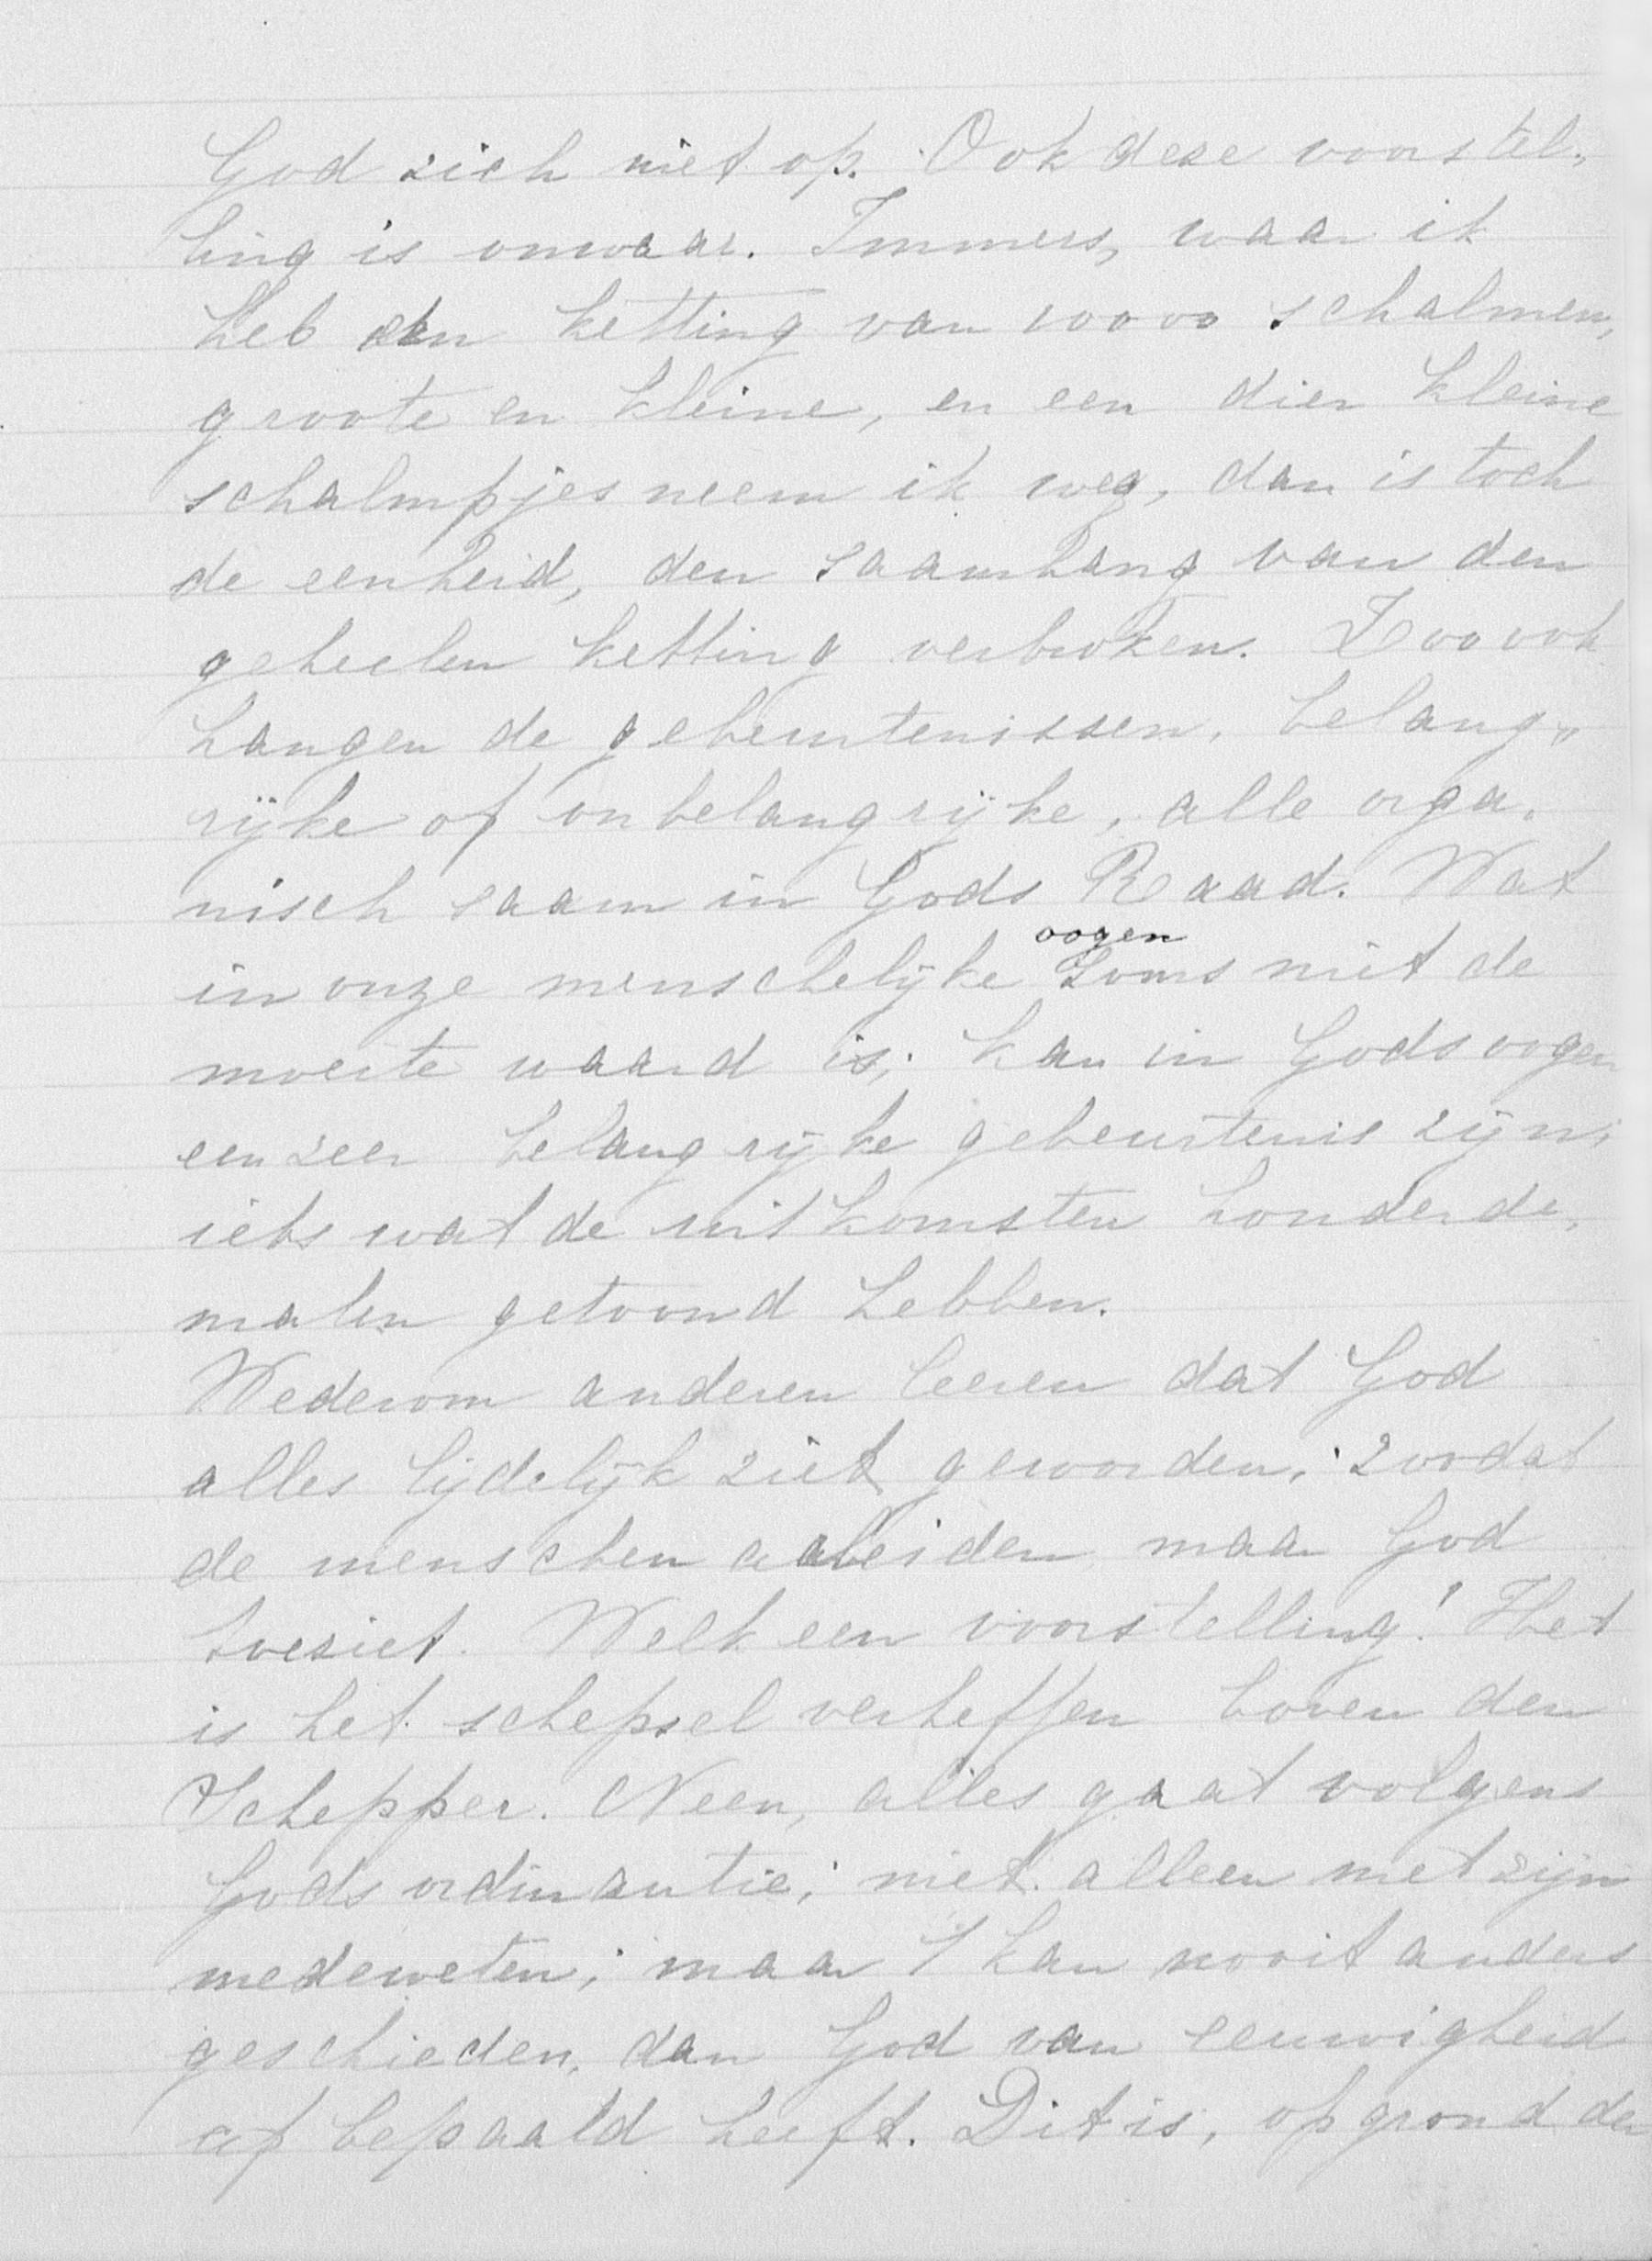 God zich niet op. Ook deze voorstel-
ling is onwaar. Immers, waar ik
heb een ketting van 10000 schalmen,
groote en kleine, en een dier kleine
schalmpjes neem ik weg, dan is toch
de eenheid, den saamhang van den
geheelen ketting verbroken. Zoo ook
hangen de gebeurtenissen, belang-
rijke of onbelangrijke, alle orga-
nisch saam in Gods Raad. Wat
in onze menschelijke oogen soms niet de
moeite waard is; kan in Gods oogen
een zeer belangrijke gebeurtenis zijn;
iets wat de uitkomsten honderde-
malen getoond hebben.
Wederom anderen leeren dat God
alles lijdelijk ziet geworden; zoodat
de menschen arbeiden maar God
toeziet. Welk een voorstelling! Het
is het schepsel verheffen boven den
Schepper. Neen, alles gaat volgens
Gods ordinantie; niet alleen met zijn
medeweten; maar 't kan nooit anders
geschieden, dan God van eeuwigheid
af bepaald heeft. Dit is, op grond der